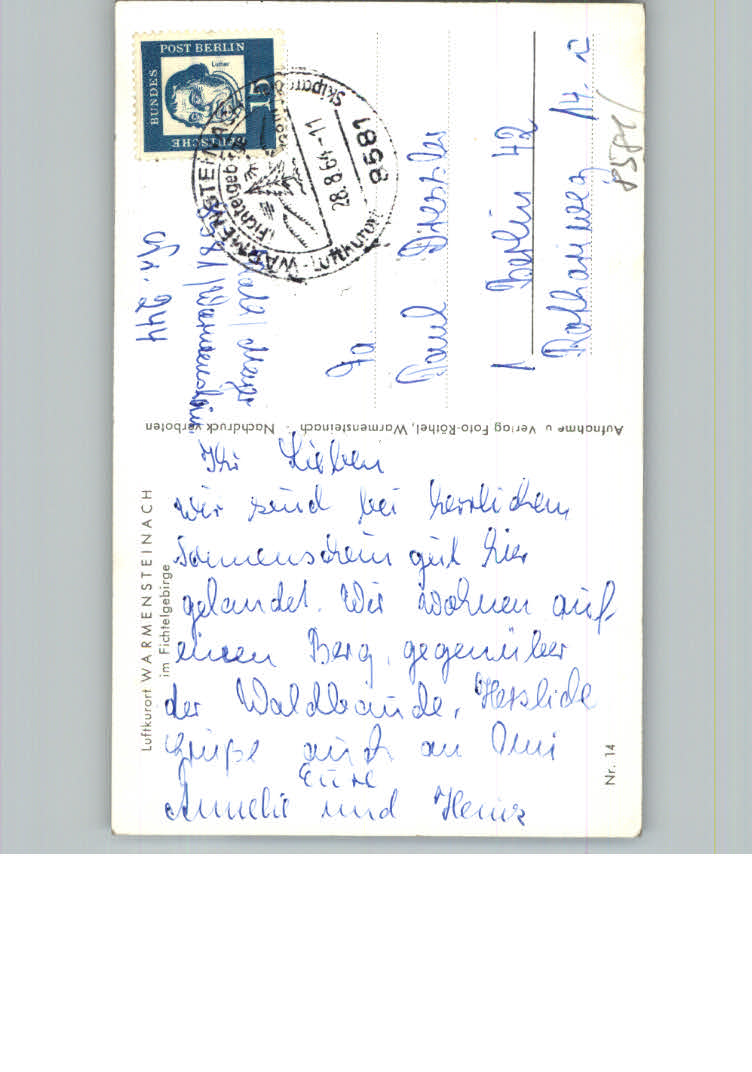 Luftkurort WARMENSTEINACH
im Fichtelgebirge
Ihr Lieben
Wir sind bei herrlichem
Sonnenschein gut hier
gelandet. Wir wohnen auf
einen Berg, gegenüber
der Waldbaude. Herzliche
Grüße auch an Omi
Eure
Annelie und Heinz
Nr. 14
Aufnahme u Verlag Foto-Röthel, Warmensteinach - Nachdruck verboten
DEUTSCHE BUNDES POST BERLIN
Luther
15
LUFTKURORT-WARMENSTEINACH
(Fichtelgebirge)
28.8.64-11
8581
Meyer
8581 / Warmensteinach
Nr. 244
Fa.
Paul Dressler
1 Berlin 42
14
8581